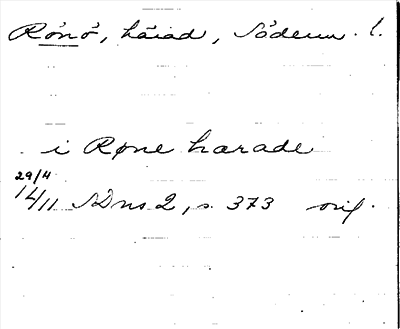 Rönö, härad, Söderm. l.
i Røne harade
29/4
14/11 SDns 2, s. 373 orig.